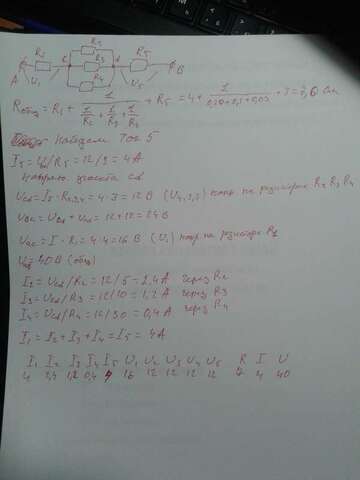 R1 R2 R3 R4 R5
A U1 c d U5 B
Rобщ = R1 + 1/(1/R2 + 1/R3 + 1/R4) + R5 = 4 +
найдем ток 5
I5 = U5/R5 = 12/3 = 4A
участка cd
Ucd = I5 · R2,3,4 = 4 · 3 = 12 В (U4,3,2) напр на резисторах R2 R3 R4
= 12 + 12 = 24 В
= I · R1 = 4 · 4 = 16 В (U1) напр на резисторе R1
= 40 В (общ)
I2 = Ucd/R2 = 12/5 = 2,4 A через R2
I3 = Ucd/R3 = 12/10 = 1,2 A через R3
I4 = Ucd/R4 = 12/30 = 0,4 A через R4
I1 = I2 + I3 + I4 = I5 = 4A
I1 I2 I3 I4 I5 U1 U2 U3 U4 U5 R I U
4 2,4 1,2 0,4 4 16 12 12 12 12 4 40